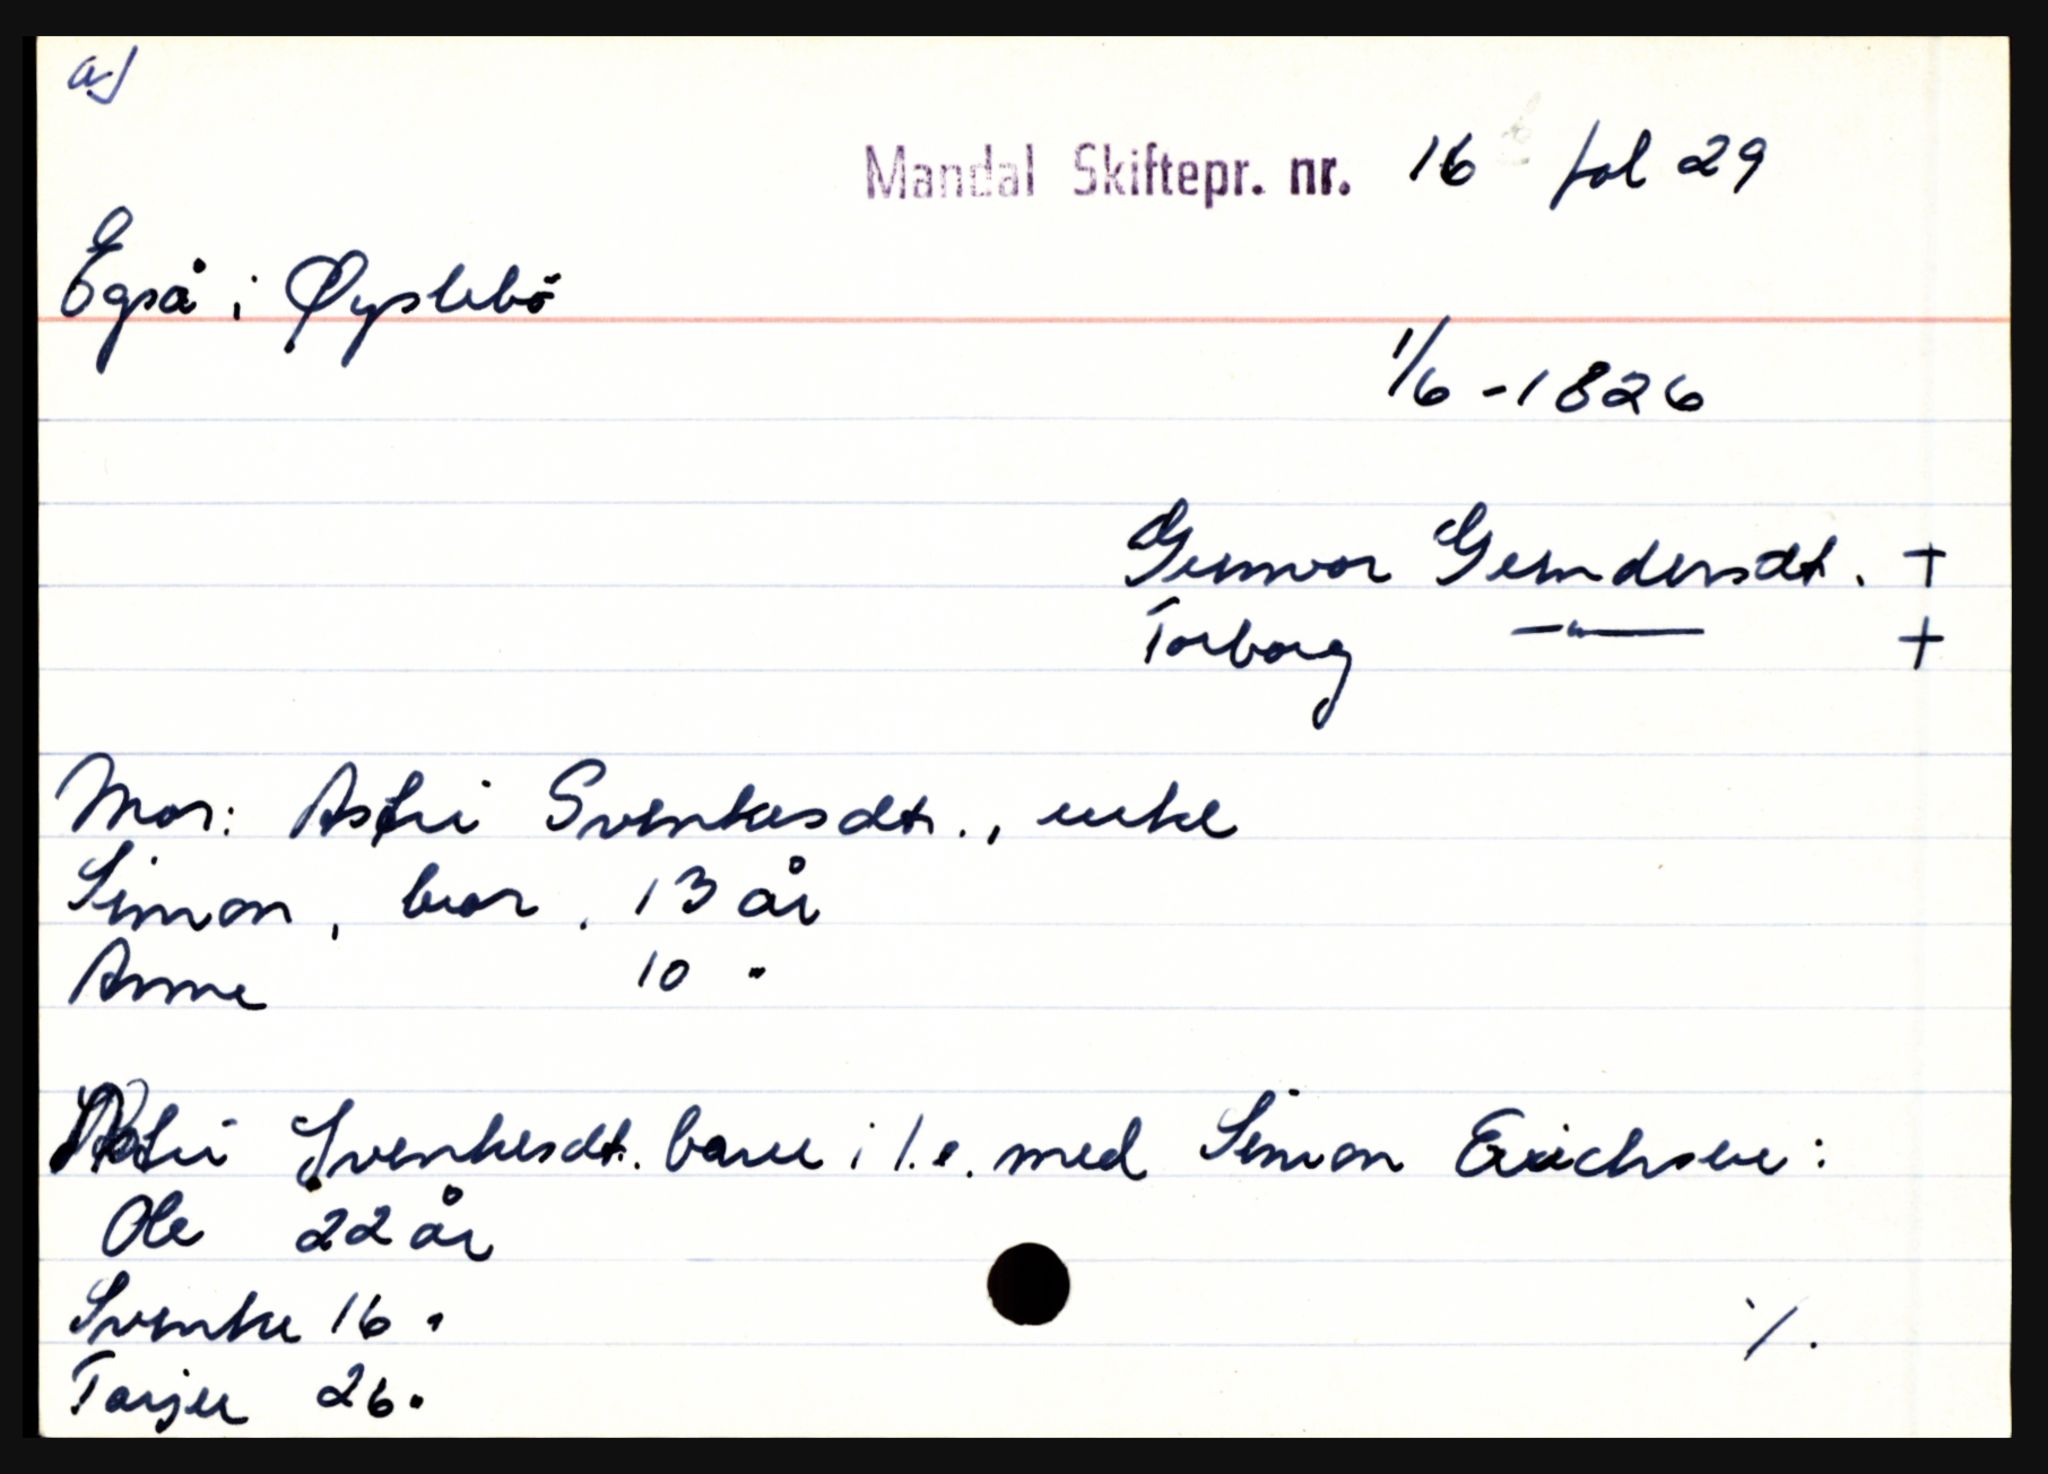 a)
Mandal Skiftepr. nr. 16 fol 29
Egså i Øyslebö
1/6 - 1826
Gunvor Gundersdt. +
Torborg —"— +
Mor: Astri Svenkesdt., enke
Simon, bror. 13 år
Anne 10 "
Astri Svenkesdt. barn i 1. e. med Simon Erichsen:
Ole 22 år
Svenke 16 "
Tarjer 26 "
./.